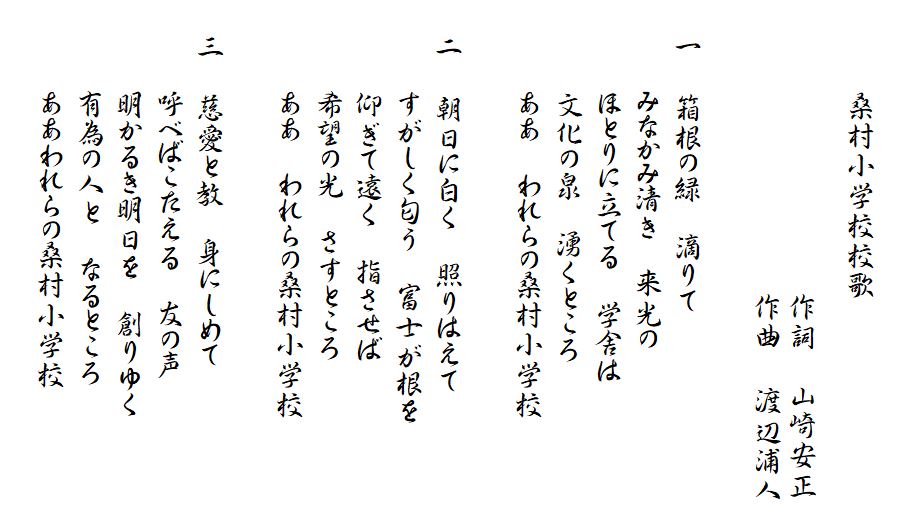 桑村小学校校歌
作詞　山崎安正
作曲　渡辺浦人
一
箱根の緑　滴りて
みなかみ清き　来光の
ほとりに立てる　学舎は
文化の泉　湧くところ
ああ　われらの桑村小学校
二
朝日に白く　照りはえて
すがしく匂う　富士が根を
仰ぎて遠く　指させば
希望の光　さすところ
ああ　われらの桑村小学校
三
慈愛と教　身にしめて
呼べばこたえる　友の声
明かるき明日を　創りゆく
有為の人と　なるところ
ああわれらの桑村小学校